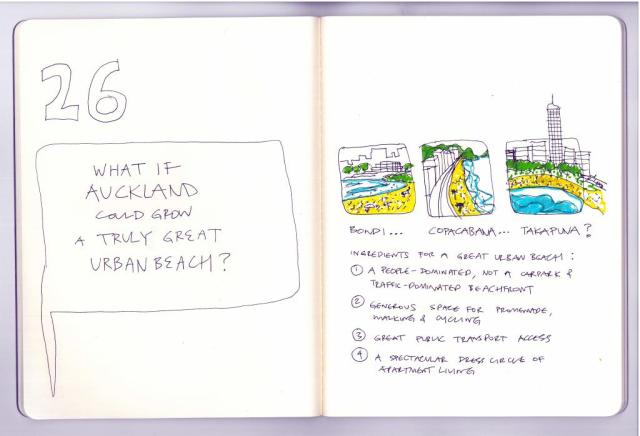 26
WHAT IF
AUCKLAND
COULD GROW
A TRULY GREAT
URBAN BEACH?
BONDI... COPACABANA... TAKAPUNA?
INGREDIENTS FOR A GREAT URBAN BEACH:
① A PEOPLE-DOMINATED, NOT A CARPARK &
TRAFFIC-DOMINATED BEACHFRONT
② GENEROUS SPACE FOR PROMENADE,
WALKING & CYCLING
③ GREAT PUBLIC TRANSPORT ACCESS
④ A SPECTACULAR DRESS CIRCLE OF
APARTMENT LIVING